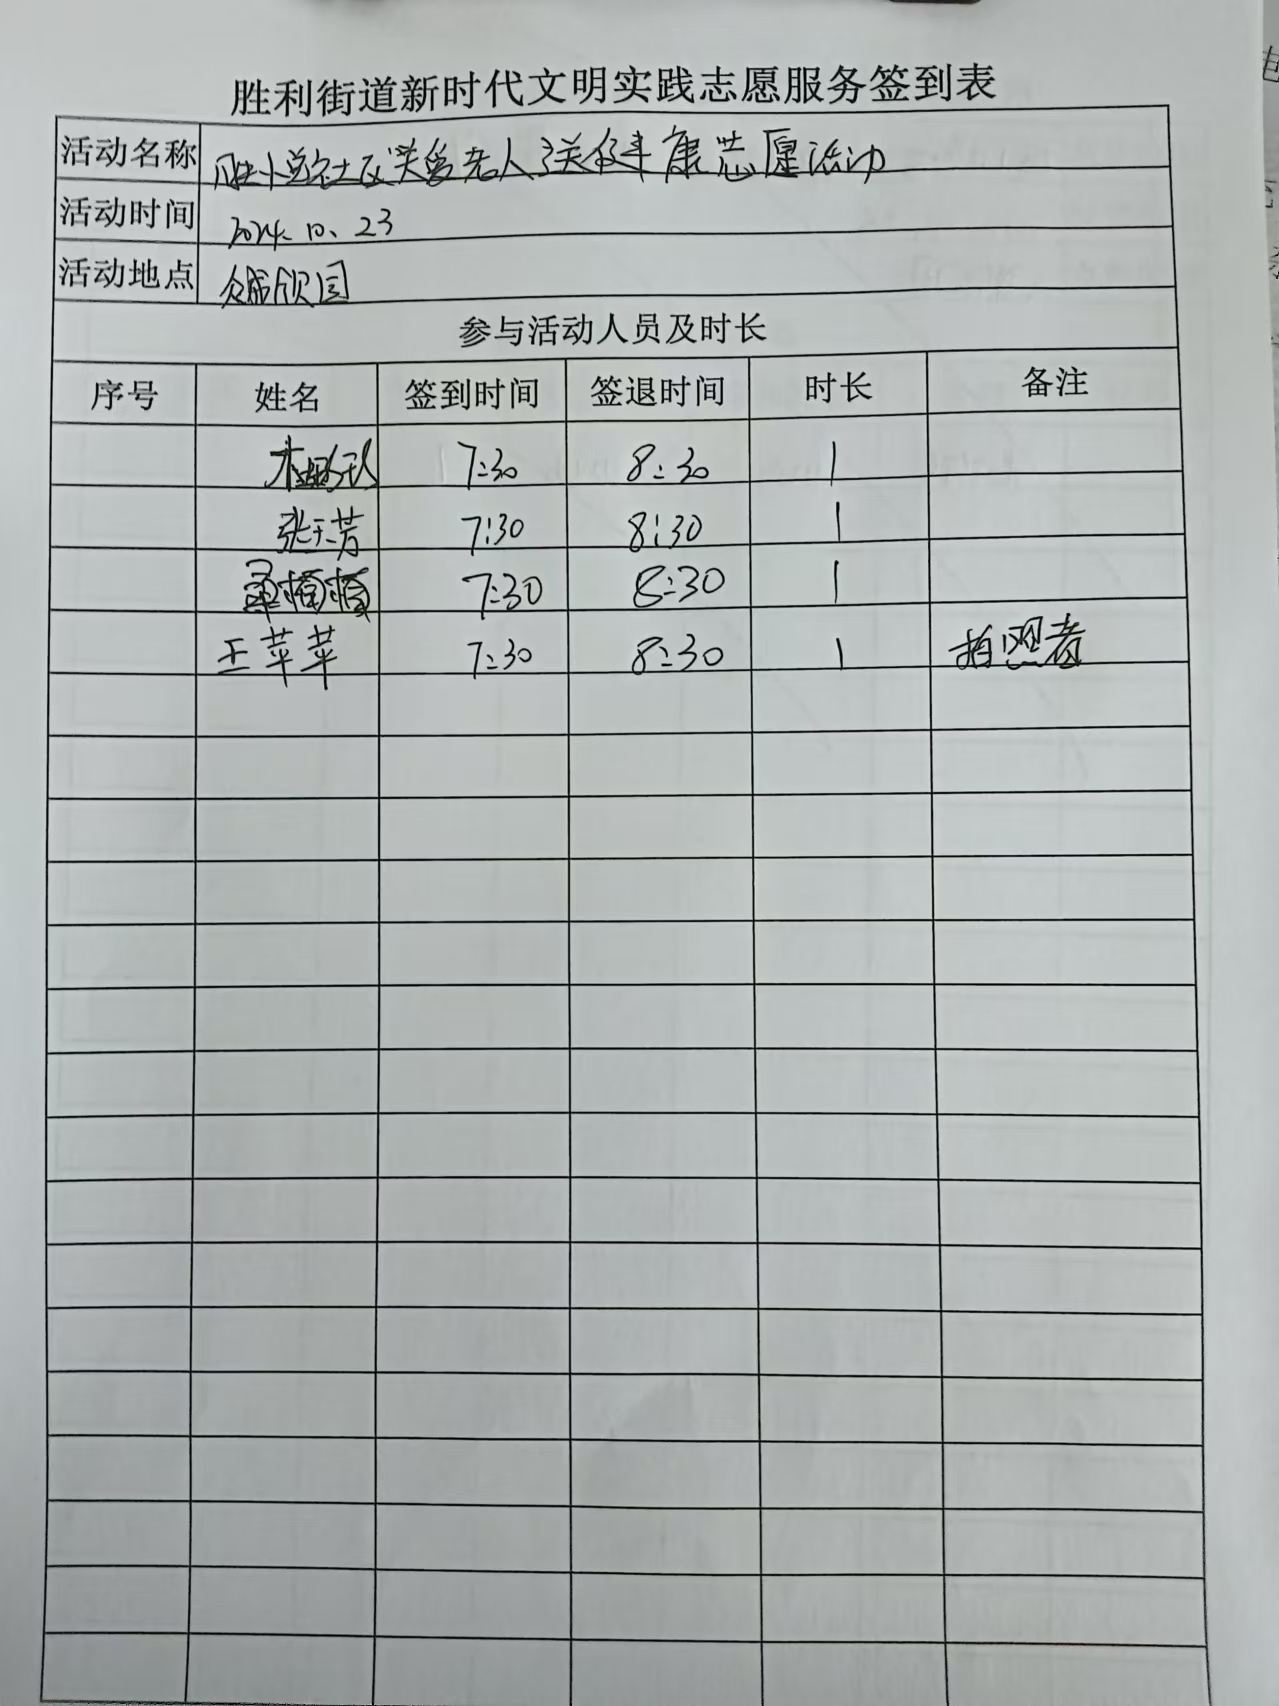 胜利街道新时代文明实践志愿服务签到表
活动名称 社区"关爱老人 送健康"志愿活动
活动时间 2024.10.23
活动地点
参与活动人员及时长
序号 姓名 签到时间 签退时间 时长 备注
7:30 8:30 1
张玉芳 7:30 8:30 1
7:30 8:30 1
王苹苹 7:30 8:30 1 拍照者